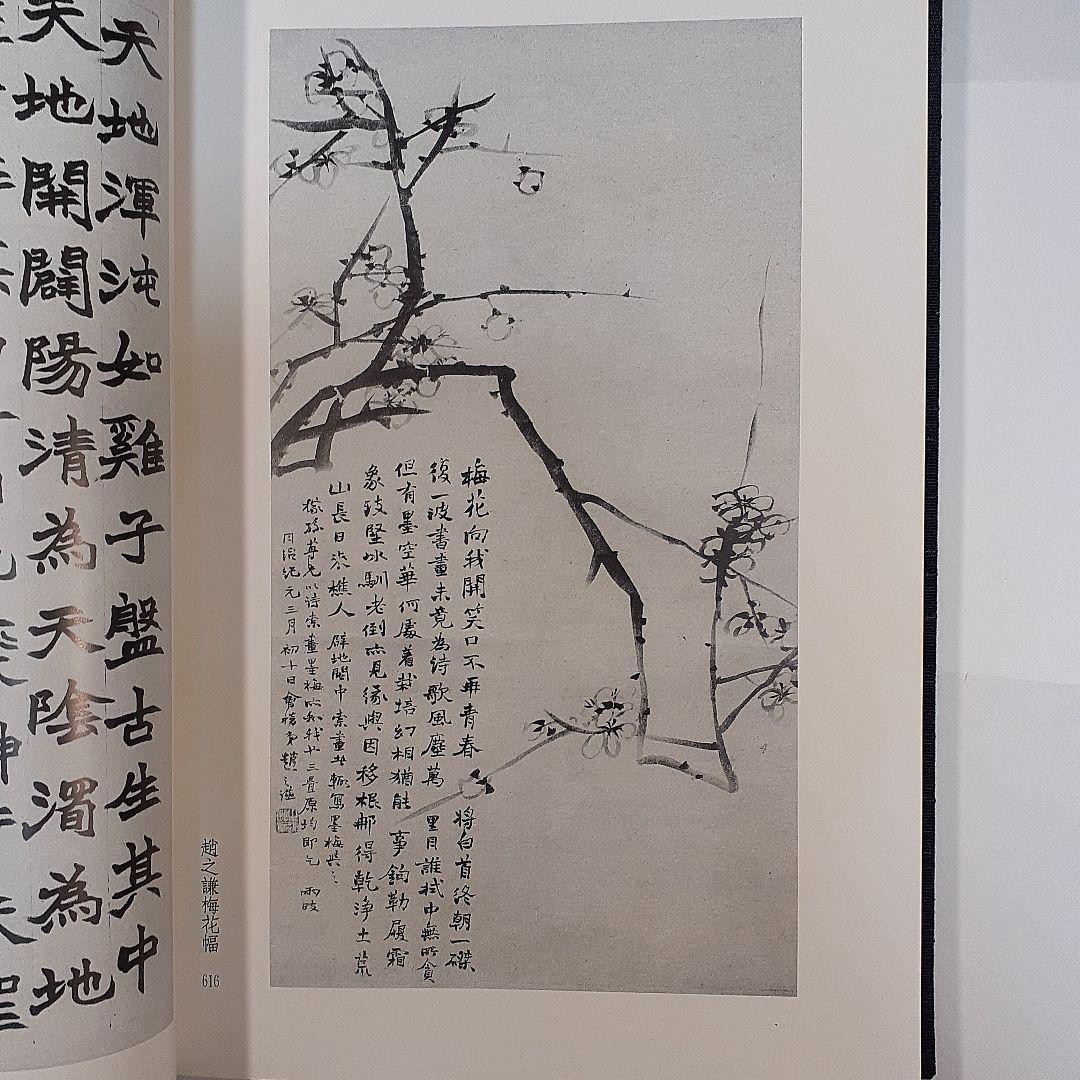 梅花向我開笑口不再青春將白首終朝一磔
復一波書畫未竟為詩歌風塵萬里月誰拭中無所貪
但有墨空華何處著栽培幻相猶能事鉤勒履霜
象致堅冰馴老倒亦見緣與因移根那得乾淨土荒
山長日求樵人 辟地閩中索畫輒寫墨梅與之
稼孫尊兄以詩索畫墨梅以和我十三疊原均即乞 兩政
同治紀元三月初十日會稽弟趙之謙
趙之謙梅花幅
616
天地渾沌如雞子盤古生其中
天地開闢陽清為天陰濁為地